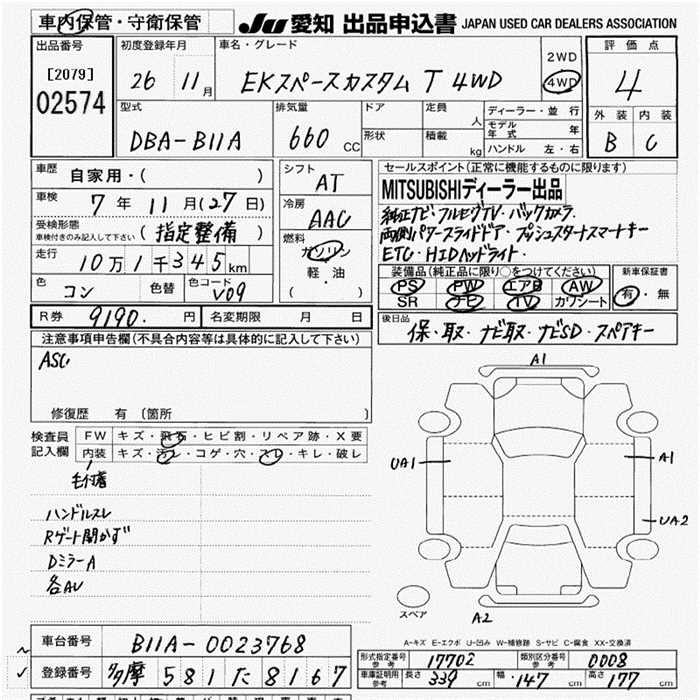 車内保管・守衛保管 JU 愛知 出品申込書 JAPAN USED CAR DEALERS ASSOCIATION
出品番号 初度登録年月 車名・グレード 2WD 4WD 評価点
[2079] 26 11月 EKスペースカスタム T 4WD 4
02574 型式 排気量 ドア 定員 人 ディーラー・並行 外装 内装
DBA-B11A 660 CC 形状 積載 kg モデル年式 年 B C
ハンドル 左・右
車歴 自家用・( ) シフト AT セールスポイント(正常に機能するものに限ります)
車検 7年 11月(27日) 冷房 AAC MITSUBISHIディーラー出品
受検形態 (指定整備) 純正ナビ・フルセグTV・バックカメラ
車検付きのみ記入して下さい 燃料 ガソリン 両側パワースライドドア・プッシュスタートスマートキー
走行 10万1千345km 軽・油 ETC・HIDヘッドライト・
( ) 装備品(純正品に限り○をつけてください) 新車保証書
色 コン 色替 色コード V09 PS PW エアB AW 有・無
SR ナビ TV カワシート
R券 9190.円 名変期限 月 日 後日品
保・取・ナビ取・ナビSD・スペアキー
注意事項申告欄(不具合内容等は具体的に記入して下さい)
ASC
修復歴 有 (箇所
検査員 FW キズ・飛石・ヒビ割・リペア跡・X要
記入欄 内装 キズ・汚レ・コゲ・穴・スレ・キレ・破レ
毛付着
ハンドルスレ
Rゲート開かず
DミラーA
各AU
A1
UA1
A1
UA2
スペア
A2
A-キズ E-エクボ U-凹み W-補修跡 S-サビ C-腐食 XX-交換済
車台番号 B11A-0023768
型式指定番号 参考 17702 類別区分番号 参考 0008
登録番号 多摩 581 た 8167
車庫証明用 参考 長さ 339 cm 幅 147 cm 高さ 177 cm